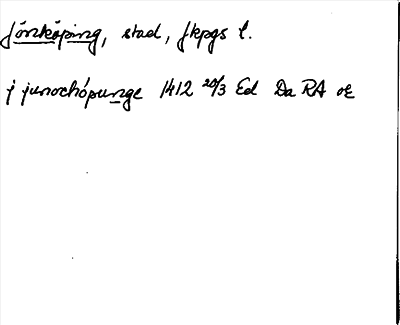 Jönköping, stad, Jkpgs l.
j junochöpunge 1412 20/3 Ed Da RA oE